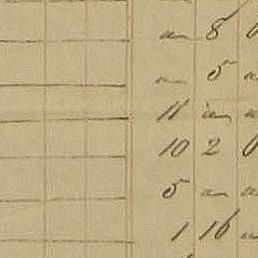 " 8 6
" 5 "
11 " "
10 2 6
5 " "
1 16 "